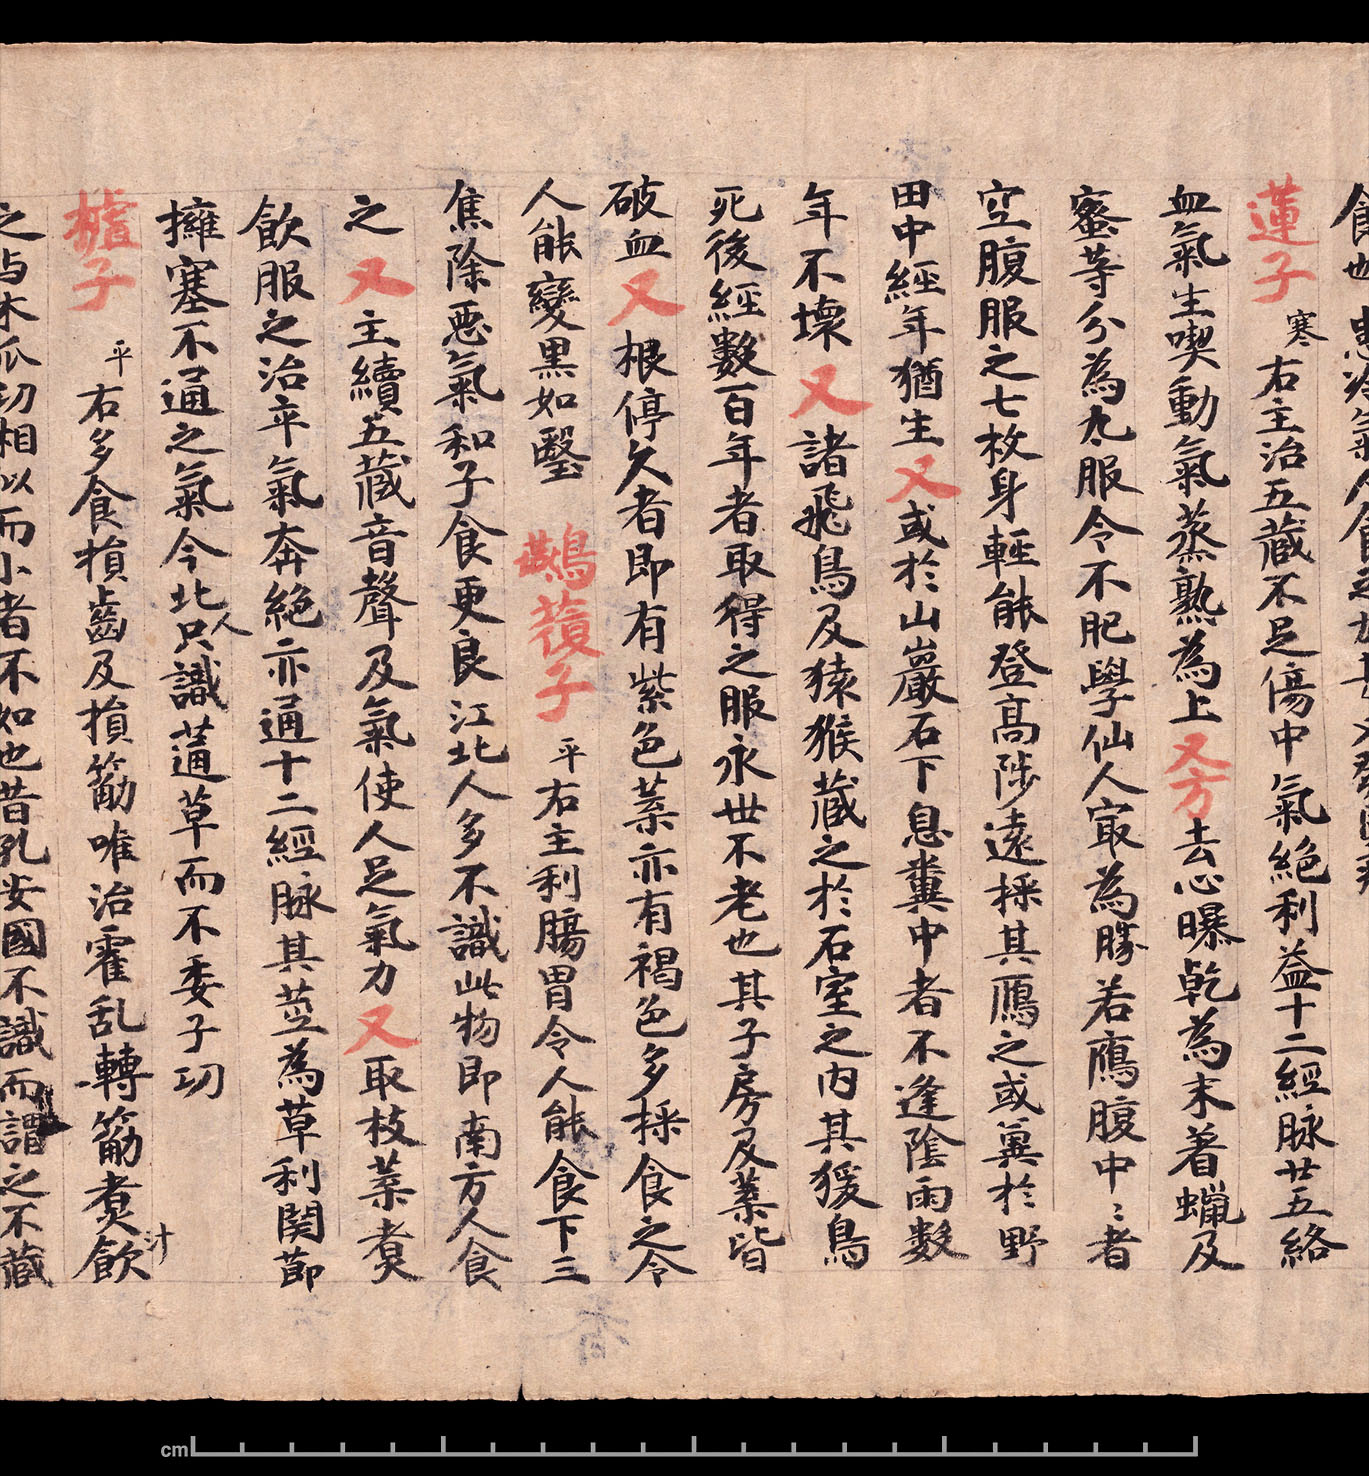 食也患冷氣人食之
蓮子寒右主治五藏不足傷中氣絕利益十二經脉廿五絡
血氣生喫動氣蒸熟為上又方去心曝乾為末著蠟及
蜜等分為丸服令不肥學仙人㝡為勝若鴈腹中〻者
空腹服之七枚身輕能登高陟遠採其鴈之或糞於野
田中經年猶生又或於山巖石下息糞中者不逢陰雨數
年不壞又諸飛鳥及猿猴藏之於石室之內其猨鳥
死後經數百年者取得之服永世不老也其子房及葉皆
破血又根停久者即有紫色葉亦有褐色多採食之令
人能變黑如瑿 鷰蕧子平右主利腸胃令人能食下三
焦除惡氣和子食更良江北人多不識此物即南方人食
之又主續五藏音聲及氣使人足氣力又取枝葉煑
飲服之治卒氣奔絕亦通十二經脉其莖為草利関節
擁塞不通之氣今北人只識蓪草而不委子功
樝子平右多食損齒及損筋唯治霍乱轉筋煑汁飲
之与木瓜功相似而小者不如也昔孔安國不識而謂之不藏